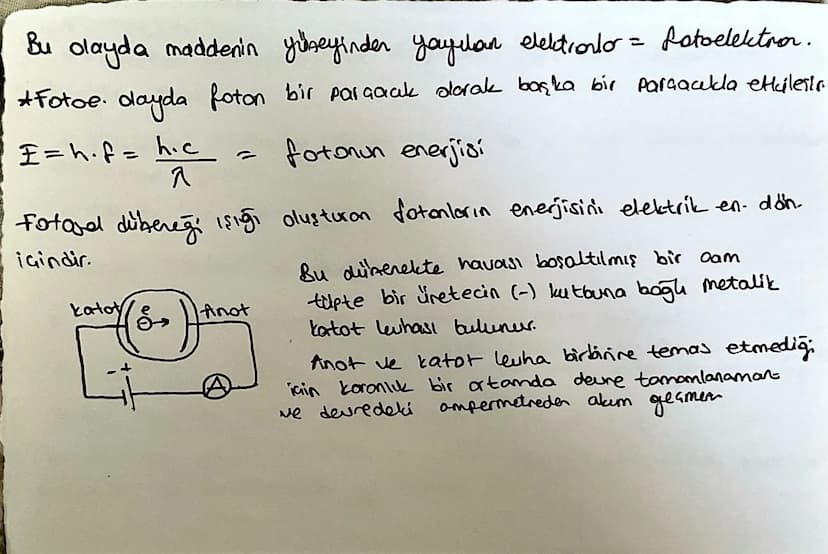 Bu olayda maddenin yüzeyinden yayılan elektronlar = fotoelektron.
*Fotoe. olayda foton bir parçacık olarak başka bir parçacıkla etkileşir.
E = h.f = h.c / λ = fotonun enerjisi
Fotosel düzeneği ışığı oluşturan fotonların enerjisini elektrik en. dön.
içindir.
Bu düzenekte havası boşaltılmış bir cam
tüpte bir üretecin (-) kutbuna bağlı metalik
katot levhası bulunur.
Anot ve katot levha birbirine temas etmediği
için karanlık bir ortamda devre tamamlanamaz
ve devredeki ampermetreden akım geçmez
katot e Anot
⊖→
- +
A